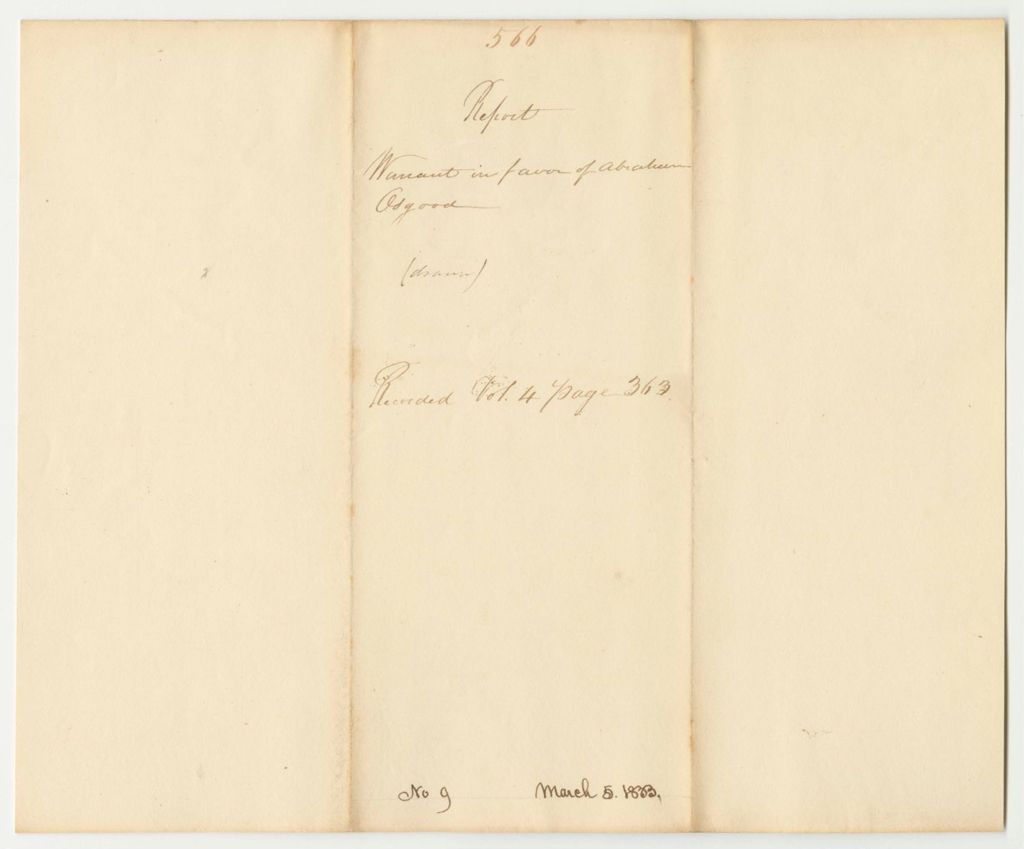 566
Report
Warrant in favor of Abraham
Osgood
(drawn)
Recorded Vol. 4 page 363
No 9 March 5. 1833.